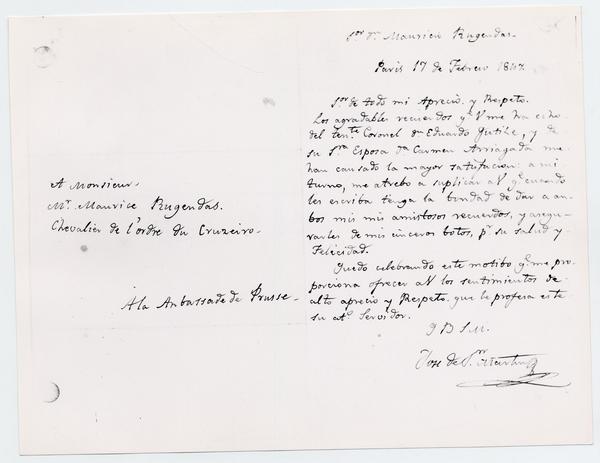 A Monsieur
Mr. Maurice Rugendas.
Chevalier de l'ordre du Cruzeiro.
A la Anbassade de Prusse.
Sor. Dn. Mauricio Rugendas.
Paris 17 de Febrero 1847.
Sor. de todo mi Aprecio y Respeto.
Los agradables recuerdos qe. V me ha echo
del tente. Coronel dn. Eduardo Gutike, y de
su Sra. Esposa Da. Carmen Arriagada me
han causado la mayor satisfacion: a mi
turno, me atrebo a suplicar a V qe. cuando
les escriba tenga la bondad de dar a am-
bos mis mis amistosos recuerdos, y asegu-
rarles de mis sinceros botos, pr. su salud y
Felicidad.
Quedo celebrando este motibo qe. me pro-
porciona ofrecer a V los sentimientos de
alto aprecio y Respeto que le profesa este
su at. Servidor.
Q B S M.
Jose de Sn. Martin